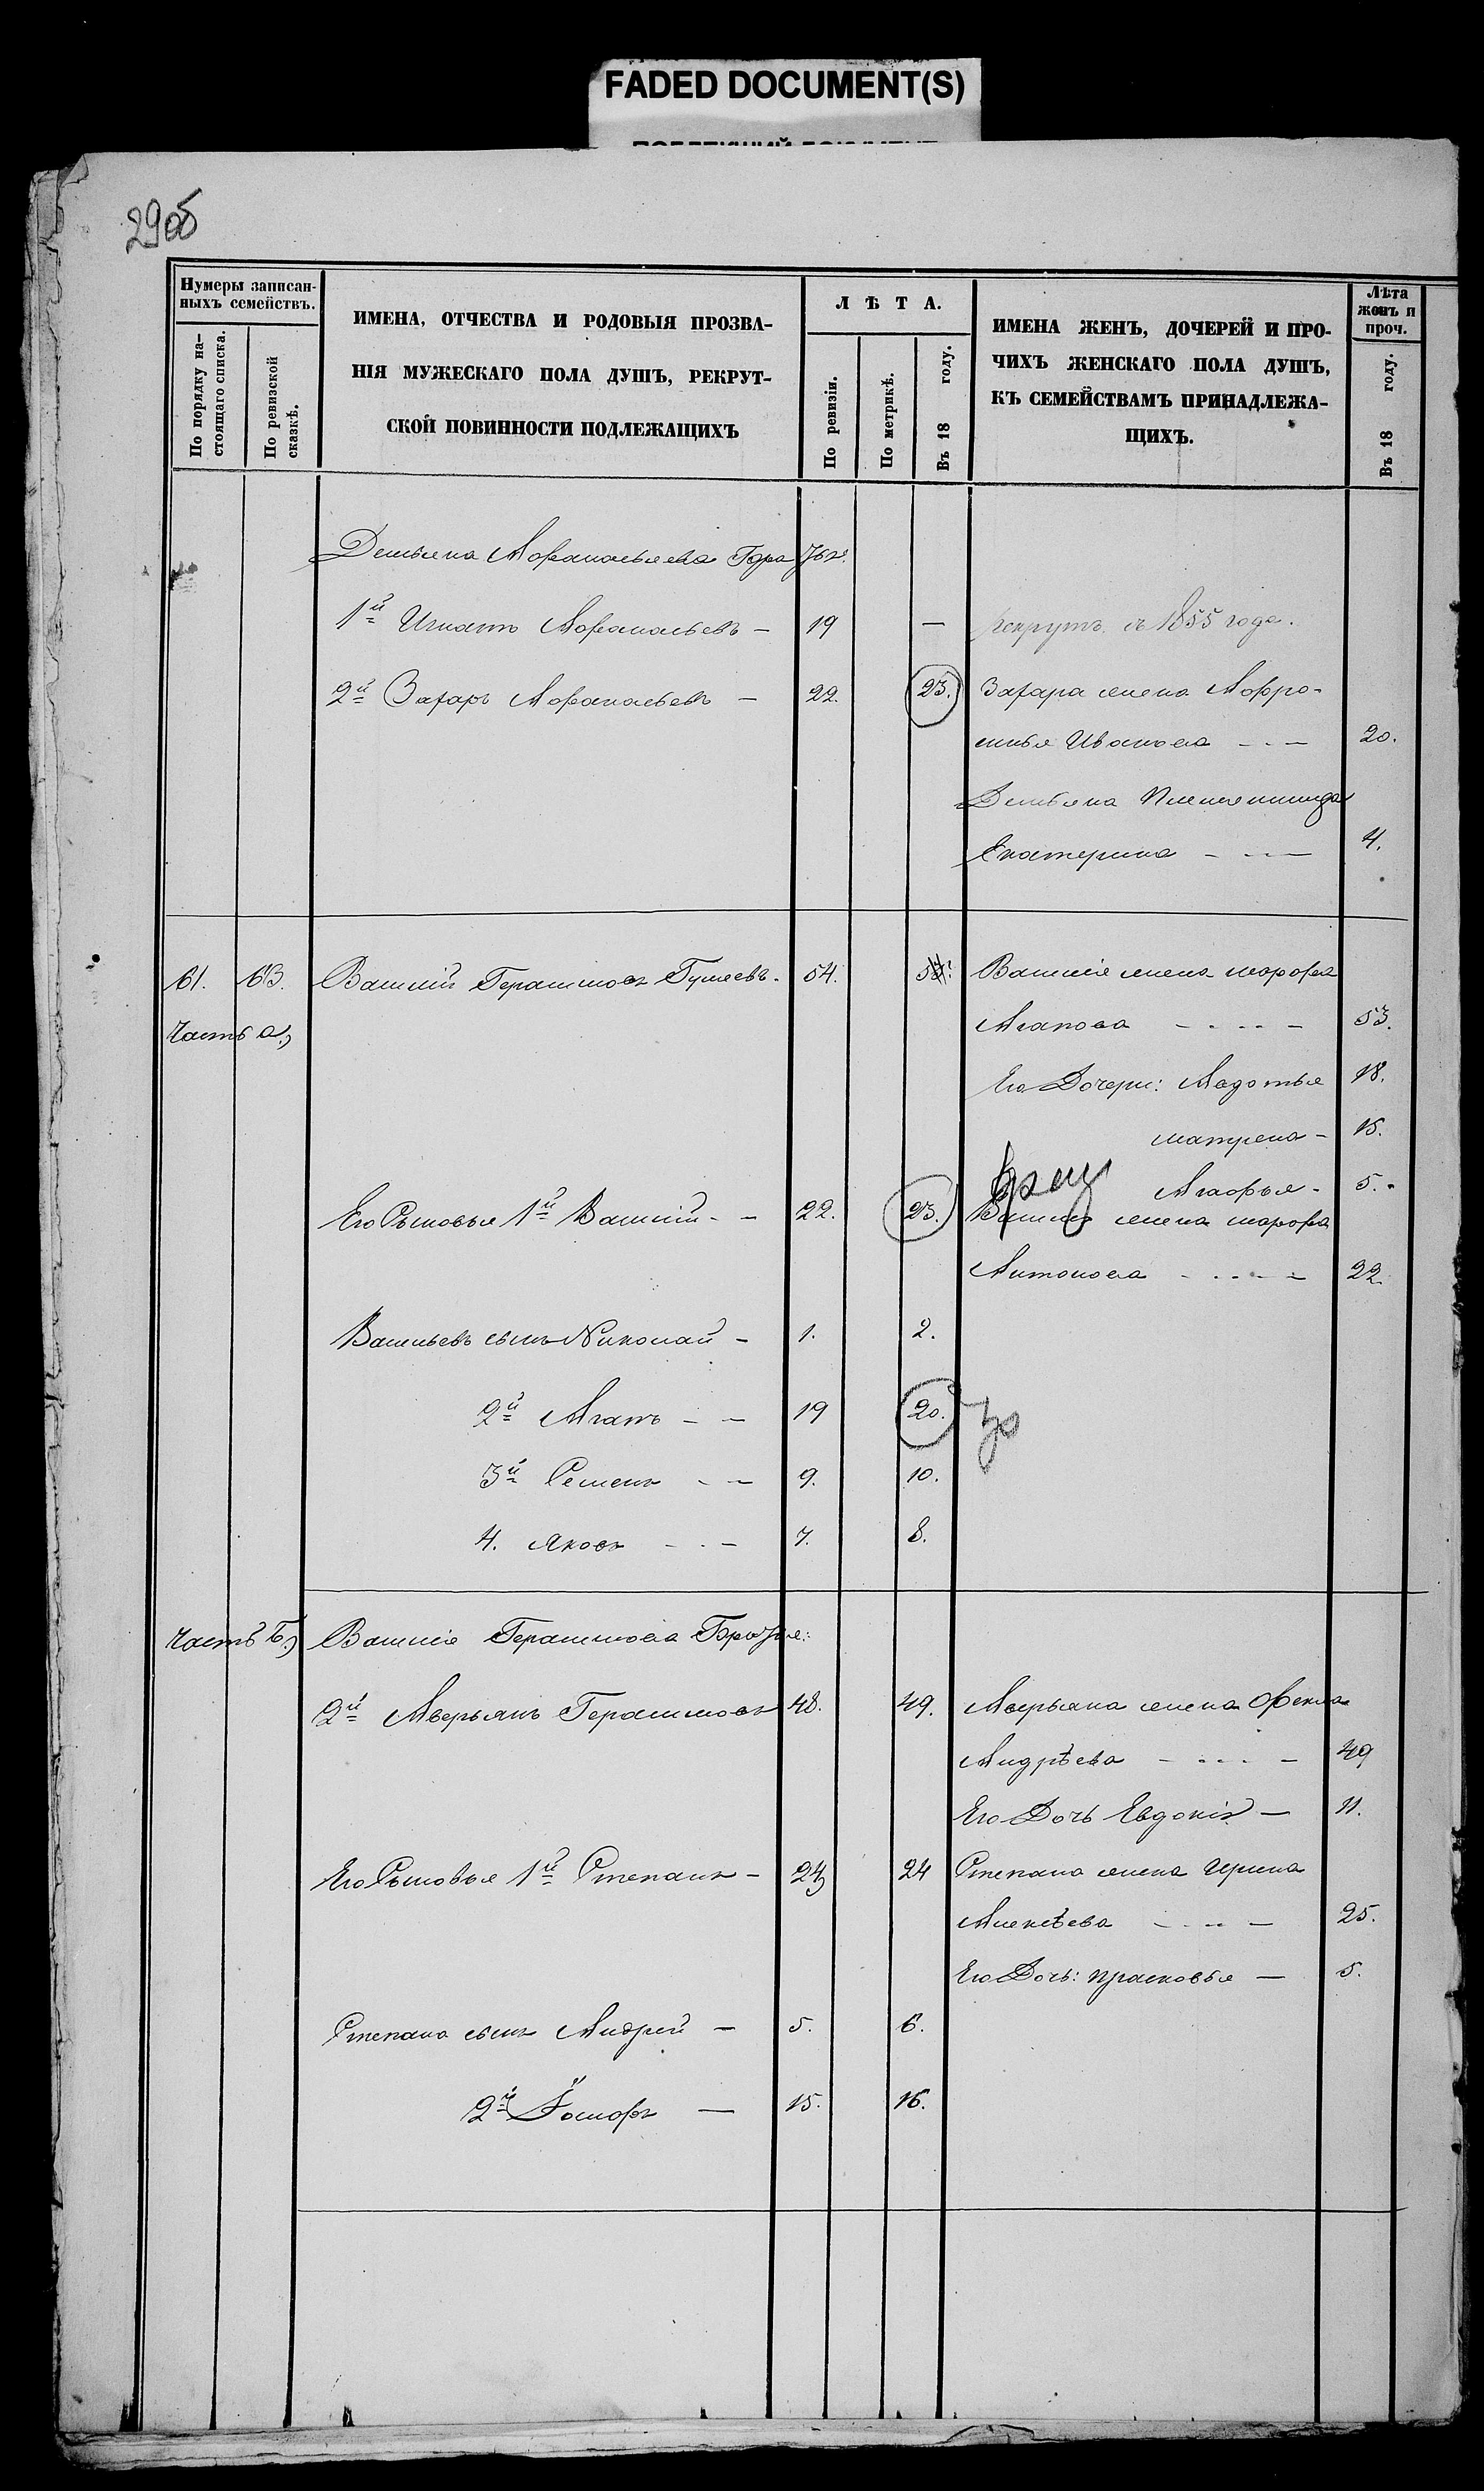 FADED DOCUMENT(S)
29об
Нумеры записан-
ныхъ семействъ.
По порядку на-
стоящаго списка.
По ревизской
сказкѣ.
ИМЕНА, ОТЧЕСТВА И РОДОВЫЯ ПРОЗВА-
НІЯ МУЖЕСКАГО ПОЛА ДУШЪ, РЕКРУТ-
СКОЙ ПОВИННОСТИ ПОДЛЕЖАЩИХЪ
ЛѢТА.
По ревизіи.
По метрикѣ.
Въ 18 году.
ИМЕНА ЖЕНЪ, ДОЧЕРЕЙ И ПРО-
ЧИХЪ ЖЕНСКАГО ПОЛА ДУШЪ,
КЪ СЕМЕЙСТВАМЪ ПРИНАДЛЕЖА-
ЩИХЪ.
Лѣта
женъ и
проч.
Въ 18 году.
Демьяна Афанасьева
1й Игнатъ Афанасьевъ — 19 — рекрутъ съ 1855 года.
2й Захаръ Афанасьевъ — 22. 23. Захара жена Афро-
синья Иванова - - — 20.
Демьяна Племянница
Екатерина - - — 4.
61. 63. Василій Герасимовъ Гуляевъ. 54. Василія жена марфа
Часть а,) Агапова - - - - 53.
Его Дочери: Авдотья 18.
матрена - 15.
Агафья - 5.
Его Сыновья 1й Василий - - 22. 23. Василія жена марфа
Антонова - - - - 22.
Васильевъ сынъ Николай - 1. 2.
2й Агапъ - - 19 20.
3й Семенъ - - 9. 10.
4. Яковъ - - - 7. 8.
Часть Б,) Василія Герасимова
2й Аверьянъ Герасимовъ 48. 49. Аверьяна жена Фекла
Андрѣева - - - - 49
Его Дочь Евдокія — 11.
Его Сыновья 1й Степанъ - 24 Степана жена Ирина
Алексѣева - - - 25.
Его Дочь: прасковья — 5.
Степана сынъ Андрей — 5. 6.
2й — 15. 16.